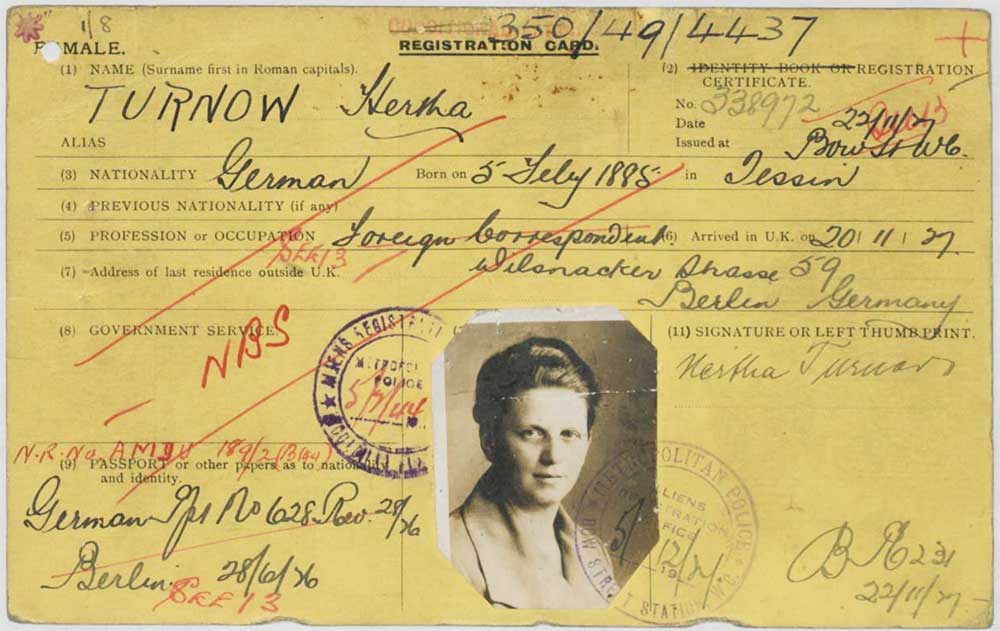 1/8
350/49/4437
FEMALE.
REGISTRATION CARD.
(1) NAME (Surname first in Roman capitals).
TURNOW Hertha
(2) IDENTITY BOOK OR REGISTRATION
CERTIFICATE.
No. 338972
Date 22/11/27
ALIAS
Issued at Bow St WC.
(3) NATIONALITY German Born on 5 Feby 1885 in Tessin
(4) PREVIOUS NATIONALITY (if any)
(5) PROFESSION or OCCUPATION Foreign Correspondent. (6) Arrived in U.K. on 20/11/27
SEE 13
(7) Address of last residence outside U.K. Wilsnacker Strasse 59
Berlin Germany
(8) GOVERNMENT SERVICE.
(11) SIGNATURE OR LEFT THUMB PRINT.
Hertha Turnow
NBS
ALIENS REGISTRATI
METROPOL
POLICE
5/7/44
N.R. No. AMDU 189/2
(9) PASSPORT or other papers as to nationality
and identity.
German Ppt No 628 Rev. 28/26
Berlin 28/6/26
SEE 13
METROPOLITAN POLICE
ALIENS
REGISTRATION
OFFICE
5/12/21
19
BOW STREET STATION W.C.
22/11/27